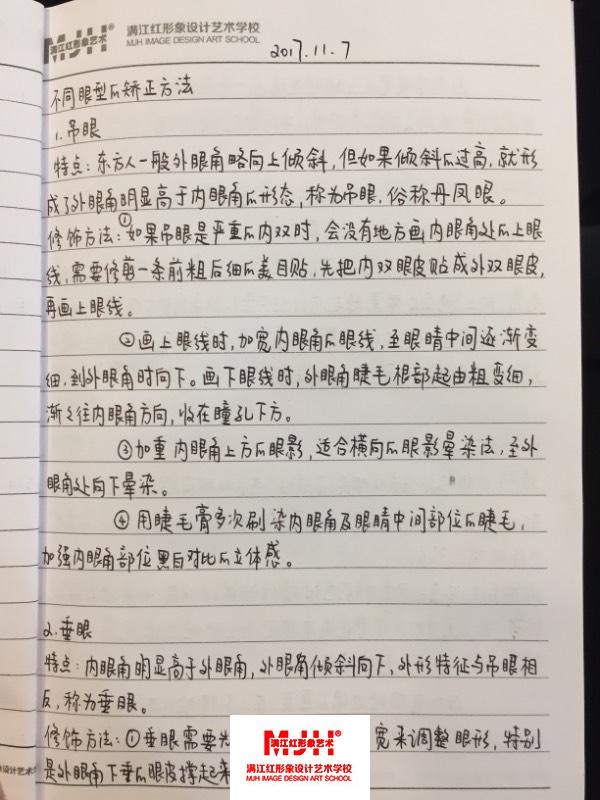 满江红形象艺术
MJH
满江红形象设计艺术学校
MJH IMAGE DESIGN ART SCHOOL
2017.11.7
不同眼型的矫正方法
1.吊眼
特点：东方人一般外眼角略向上倾斜，但如果倾斜的过高，就形
成了外眼角明显高于内眼角的形态，称为吊眼，俗称丹凤眼。
修饰方法：①如果吊眼是严重的内双时，会没有地方画内眼角处的上眼
线，需要修剪一条前粗后细的美目贴，先把内双眼皮贴成外双眼皮，
再画上眼线。
②画上眼线时，加宽内眼角的眼线，至眼睛中间逐渐变
细，到外眼角时向下。画下眼线时，外眼角睫毛根部起由粗变细，
渐渐往内眼角方向，收在瞳孔下方。
③加重内眼角上方的眼影，适合横向的眼影晕染法，至外
眼角处向下晕染。
④用睫毛膏多次刷染内眼角及眼睛中间部位的睫毛，
加强内眼角部位黑白对比的立体感。
2.垂眼
特点：内眼角明显高于外眼角，外眼角倾斜向下，外形特征与吊眼相
反，称为垂眼。
修饰方法：①垂眼需要先 宽来调整眼形，特别
是外眼角下垂的眼皮撑起来
满江红形象艺术
MJH
满江红形象设计艺术学校
MJH IMAGE DESIGN ART SCHOOL